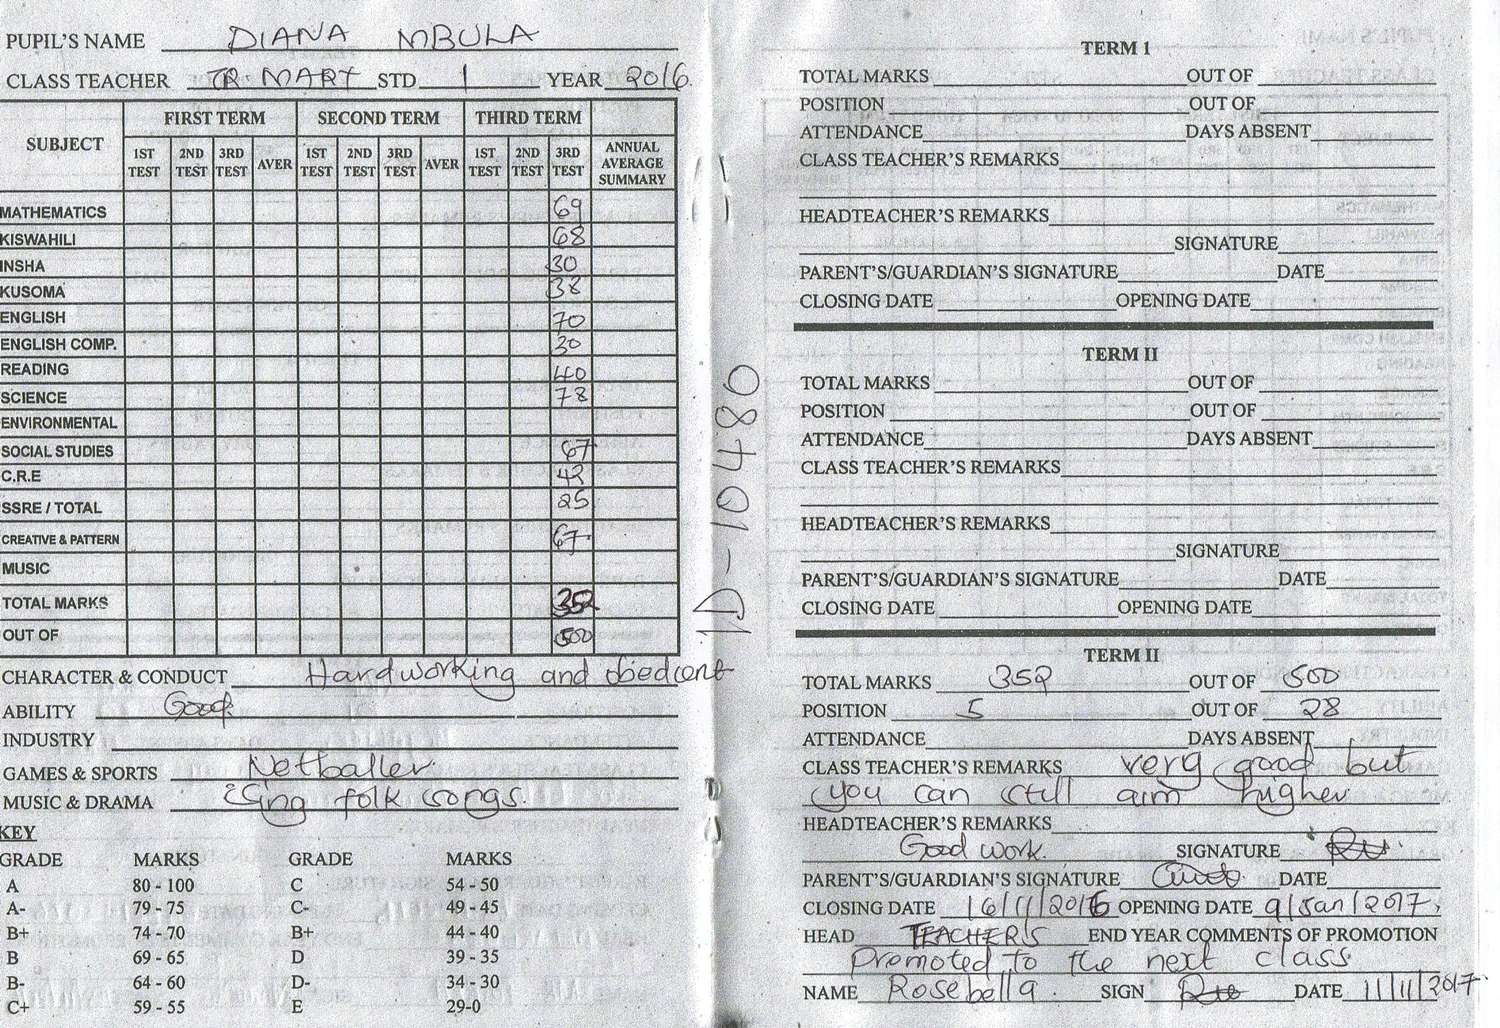 PUPIL'S NAME DIANA MBULA
CLASS TEACHER TR MARY STD 1 YEAR 2016.
SUBJECT FIRST TERM SECOND TERM THIRD TERM ANNUAL AVERAGE SUMMARY
1ST TEST 2ND TEST 3RD TEST AVER 1ST TEST 2ND TEST 3RD TEST AVER 1ST TEST 2ND TEST 3RD TEST
MATHEMATICS 69
KISWAHILI 68
INSHA 30
KUSOMA 38
ENGLISH 70
ENGLISH COMP. 30
READING 40
SCIENCE 78
ENVIRONMENTAL
SOCIAL STUDIES 67
C.R.E 42
SSRE / TOTAL 25
CREATIVE & PATTERN 67
MUSIC
TOTAL MARKS 352
OUT OF 500
CHARACTER & CONDUCT Hardworking and obedient
ABILITY Good
INDUSTRY
GAMES & SPORTS Netballer.
MUSIC & DRAMA Sing folk songs.
KEY
GRADE MARKS GRADE MARKS
A 80 - 100 C 54 - 50
A- 79 - 75 C- 49 - 45
B+ 74 - 70 B+ 44 - 40
B 69 - 65 D 39 - 35
B- 64 - 60 D- 34 - 30
C+ 59 - 55 E 29-0
ID-10480
TERM 1
TOTAL MARKS OUT OF
POSITION OUT OF
ATTENDANCE DAYS ABSENT
CLASS TEACHER'S REMARKS
HEADTEACHER'S REMARKS
SIGNATURE
PARENT'S/GUARDIAN'S SIGNATURE DATE
CLOSING DATE OPENING DATE
TERM II
TOTAL MARKS OUT OF
POSITION OUT OF
ATTENDANCE DAYS ABSENT
CLASS TEACHER'S REMARKS
HEADTEACHER'S REMARKS
SIGNATURE
PARENT'S/GUARDIAN'S SIGNATURE DATE
CLOSING DATE OPENING DATE
TERM II
TOTAL MARKS 352 OUT OF 500
POSITION 5 OUT OF 28
ATTENDANCE DAYS ABSENT
CLASS TEACHER'S REMARKS very good but
you can still aim higher
HEADTEACHER'S REMARKS
Good work. SIGNATURE
PARENT'S/GUARDIAN'S SIGNATURE DATE
CLOSING DATE 16/11/2016 OPENING DATE 9/Jan/2017.
HEAD TEACHER'S END YEAR COMMENTS OF PROMOTION
Promoted to the next class.
NAME Rosebella. SIGN DATE 11/11/2017.